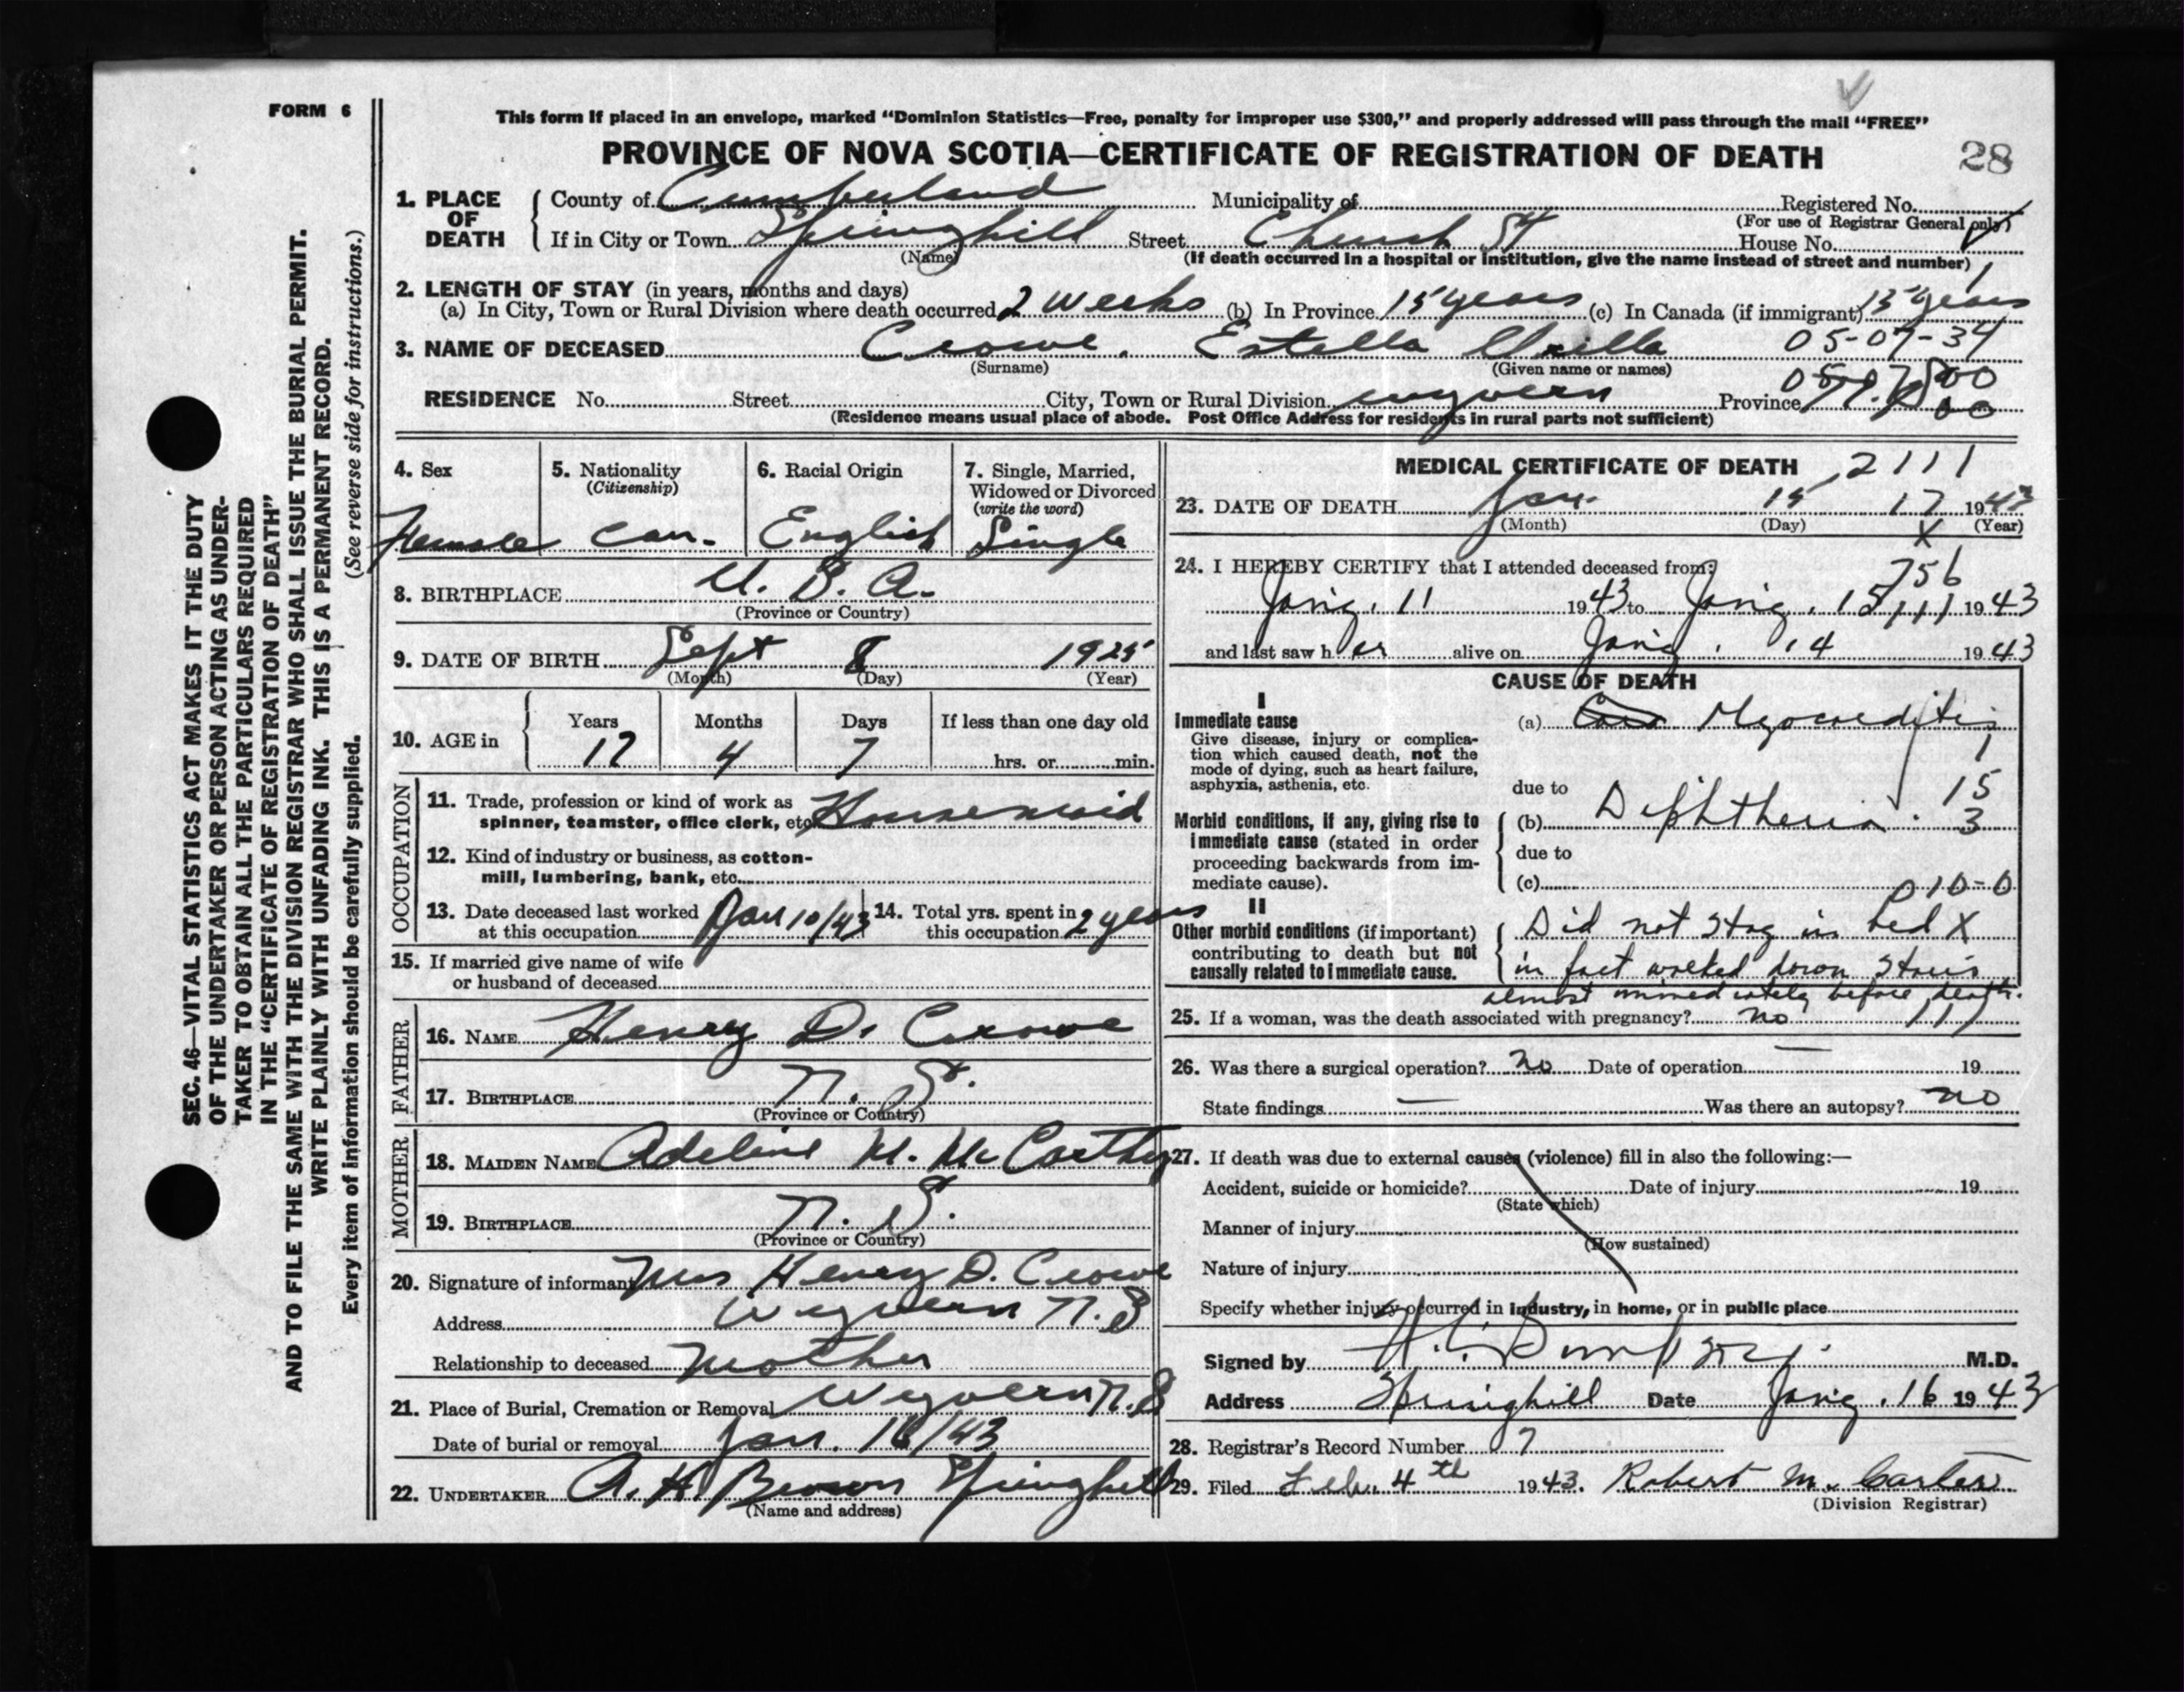 FORM 6
This form if placed in an envelope, marked “Dominion Statistics—Free, penalty for improper use $300,” and properly addressed will pass through the mail “FREE”
PROVINCE OF NOVA SCOTIA—CERTIFICATE OF REGISTRATION OF DEATH
28
1. PLACE OF DEATH
County of Cumberland Municipality of Registered No.
(For use of Registrar General only)
If in City or Town Springhill Street Church St House No.
(Name)
(If death occurred in a hospital or institution, give the name instead of street and number)
2. LENGTH OF STAY (in years, months and days)
(a) In City, Town or Rural Division where death occurred 2 weeks (b) In Province 15 years (c) In Canada (if immigrant) 15 years
3. NAME OF DECEASED Crowe. Estella 05-07-34
(Surname) (Given name or names)
RESIDENCE No. Street City, Town or Rural Division Wyvern Province N.S.
(Residence means usual place of abode. Post Office Address for residents in rural parts not sufficient)
4. Sex
Female
5. Nationality
(Citizenship)
Can.
6. Racial Origin
English
7. Single, Married,
Widowed or Divorced
(write the word)
Single
8. BIRTHPLACE U. S. A.
(Province or Country)
9. DATE OF BIRTH Sept 8 1925
(Month) (Day) (Year)
10. AGE in
Years Months Days If less than one day old
17 4 7 hrs. or min.
OCCUPATION
11. Trade, profession or kind of work as
spinner, teamster, office clerk, etc. Housemaid
12. Kind of industry or business, as cotton-
mill, lumbering, bank, etc.
13. Date deceased last worked
at this occupation Jan 10/43
14. Total yrs. spent in
this occupation 2 years
15. If married give name of wife
or husband of deceased
FATHER
16. NAME Henry D. Crowe
17. BIRTHPLACE N. S.
(Province or Country)
MOTHER
18. MAIDEN NAME Adeline M. McCarthy
19. BIRTHPLACE N. S.
(Province or Country)
20. Signature of informant Mrs Henry D. Crowe
Address Wyvern N.S
Relationship to deceased Mother
21. Place of Burial, Cremation or Removal Wyvern N.S
Date of burial or removal Jan. 16/43
22. UNDERTAKER A. H. Brown Springhill
(Name and address)
MEDICAL CERTIFICATE OF DEATH 2111
23. DATE OF DEATH Jan. 15 17 1943
(Month) (Day) (Year)
X
24. I HEREBY CERTIFY that I attended deceased from:
756
Jan'y. 11 1943 to Jan'y. 15 1943
and last saw h er alive on Jan'y. 14 1943
CAUSE OF DEATH
I
Immediate cause
Give disease, injury or complica-
tion which caused death, not the
mode of dying, such as heart failure,
asphyxia, asthenia, etc.
(a) Myocarditis
1
due to
15
Morbid conditions, if any, giving rise to
immediate cause (stated in order
proceeding backwards from im-
mediate cause).
(b) Diphtheria. 3
due to
(c)
010-0
II
Other morbid conditions (if important)
contributing to death but not
causally related to immediate cause.
Did not stay in bed X
in fact walked down stairs
almost immediately before death.
25. If a woman, was the death associated with pregnancy? no
26. Was there a surgical operation? No Date of operation — 19
State findings — Was there an autopsy? no
27. If death was due to external causes (violence) fill in also the following:—
Accident, suicide or homicide? Date of injury 19
(State which)
Manner of injury
(How sustained)
Nature of injury
Specify whether injury occurred in industry, in home, or in public place
Signed by M.D.
Address Springhill Date Jan'y. 16 1943
28. Registrar's Record Number 7
29. Filed Feb. 4th 1943. Robert M. Carter
(Division Registrar)
SEC. 46—VITAL STATISTICS ACT MAKES IT THE DUTY
OF THE UNDERTAKER OR PERSON ACTING AS UNDER-
TAKER TO OBTAIN ALL THE PARTICULARS REQUIRED
IN THE “CERTIFICATE OF REGISTRATION OF DEATH”
AND TO FILE THE SAME WITH THE DIVISION REGISTRAR WHO SHALL ISSUE THE BURIAL PERMIT.
WRITE PLAINLY WITH UNFADING INK. THIS IS A PERMANENT RECORD.
Every item of information should be carefully supplied. (See reverse side for instructions.)